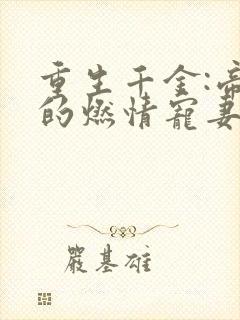 重生千金:帝
的燃情寵妻
嚴基雄